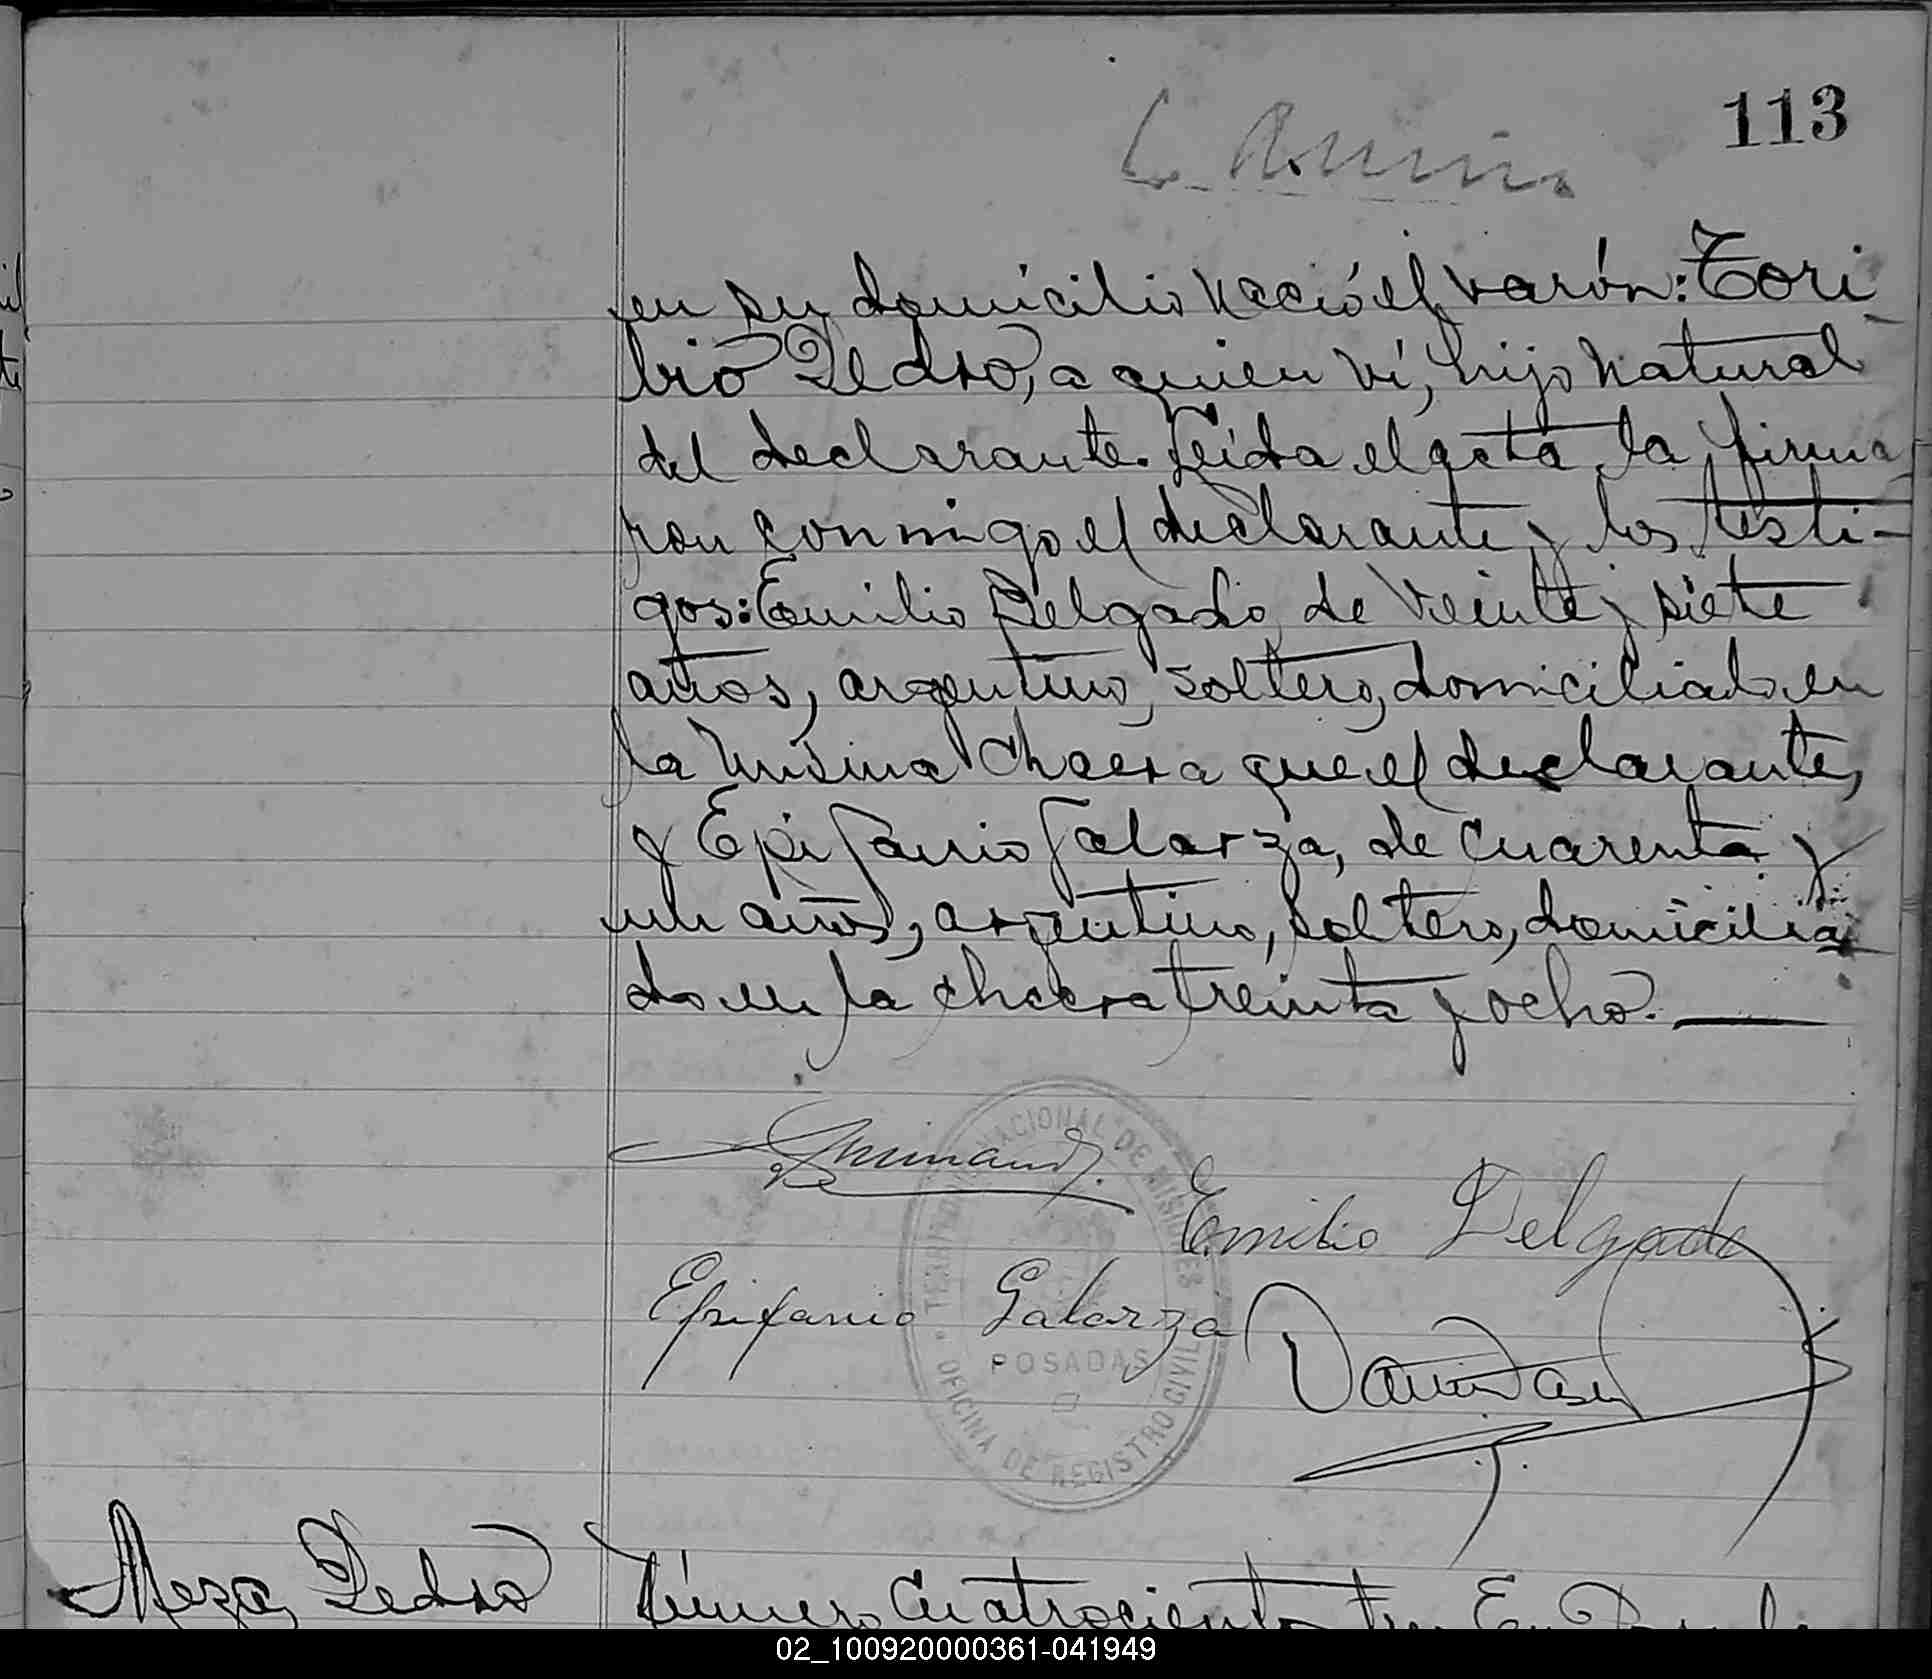 113
en su domicilio nació el varón: Tori
bio Pedro, a quien ví, hijo natural
del declarante. Leída el acta la firma
ron conmigo el declarante y los testi-
gos: Emilio Delgado de veinte y siete
años, argentino, soltero, domiciliado en
la misma chacra que el declarante,
y Epifanio Galarza, de cuarenta y
un años, argentino, soltero, domicilia
do en la chacra treinta y ocho.
Emilio Delgado
Epifanio Galarza
TERRITORIO NACIONAL DE MISIONES
POSADAS
OFICINA DE REGISTRO CIVIL
Meza, Pedro
Número cuatrocientos tres En
02_100920000361-041949